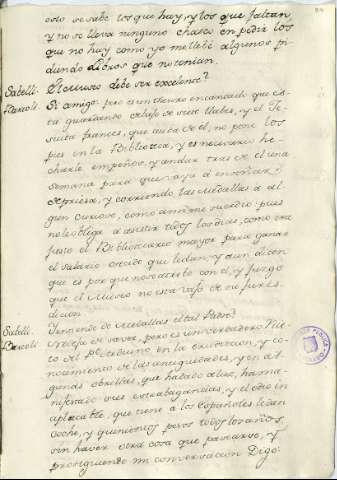 esto se sabe los que hay, y los que faltan,
y no se lleva ninguno chasco en pedir los
que no hay como yo me llebé algunos pi-
diendo Libros que no tenian.
Sabelli. El Museo debe ser excelente?
Barcoli. Si amigo: pero es un thesoro encantado que es-
ta guardando debajo de siete llabes, y el Je-
suita frances, que cuida de él, no pone los
pies en la Biblioteca, y es necesario he-
charle empeños, y andar tras de el una
semana para que vaya á enseñar
de priesa, y corriendo las Medallas á al-
gun curioso, como á mi me sucedio pues
no le obliga á asistir todos los dias, como era
justo el Bibliotecario mayor para ganar
el salario crecido que le dan, y aun dicen
que es por que no se atribe con el, y juzgo
que el Museo no esta vajo de su juris-
dicion.
Sabelli. Y entiende de Medallas el tal Padre?
Barcoli. No deja de saver, pero es un verdadero Nie-
to del P. Arduino en la erudicion, y co-
nocimiento de las antiguedades, y en al-
gunas obrillas, que ha dado á luz, ha ma-
nifestado sus extrabagancias, y el odio in
aplacable, que tiene a los Españoles, le dan
Coche, y quinientos pesos todos los años,
sin haver otra cosa que pasearse, y
prosiguiendo mi conversacion Digo: